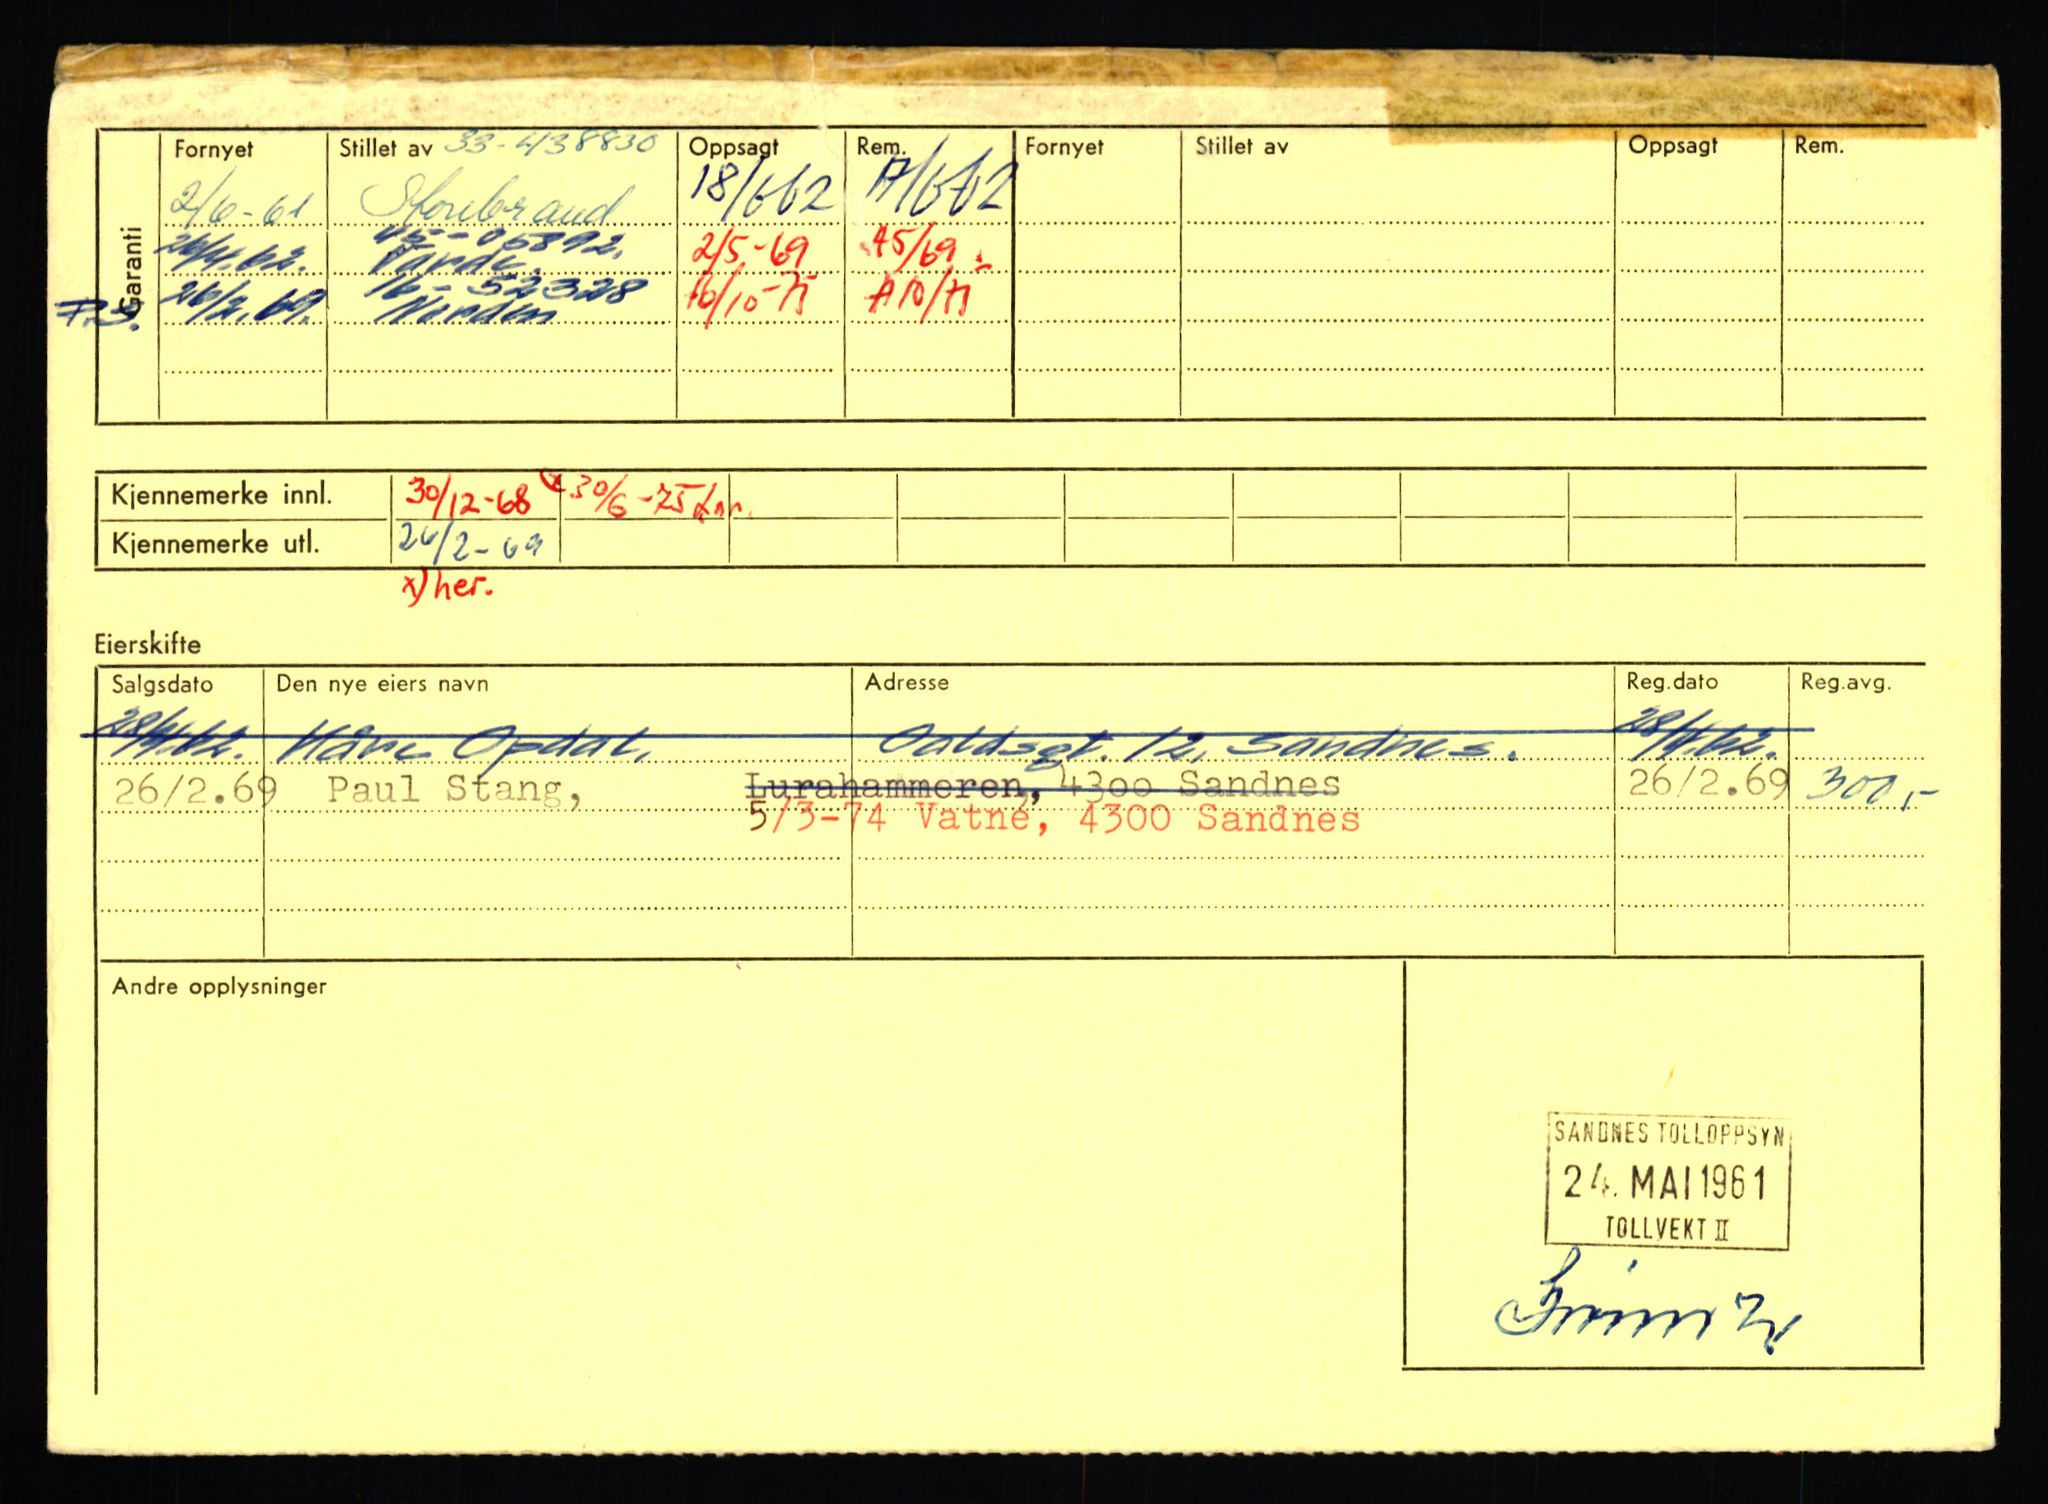 Garanti
Fornyet Stillet av 33-438830 Oppsagt Rem. Fornyet Stillet av Oppsagt Rem.
2/6-61 Storebrand 18/6 62 A/6 62
45-05892.
26/4.62. 2/5-69 A5/69.
16-52328
26/2.69. Norden 10/10-75 A10/75
Kjennemerke innl. 30/12-68 x 30/6-75
Kjennemerke utl. 26/2-69
x) her.
Eierskifte
Salgsdato Den nye eiers navn Adresse Reg.dato Reg.avg.
28/4.62. Håvc Opdal, Oaldsgt. 12, Sandnes. 28/4.62.
26/2.69 Paul Stang, Lurahammeren, 4300 Sandnes 26/2.69 300,-
5/3-74 Vatne, 4300 Sandnes
Andre opplysninger
SANDNES TOLLOPPSYN
24. MAI 1961
TOLLVEKT II